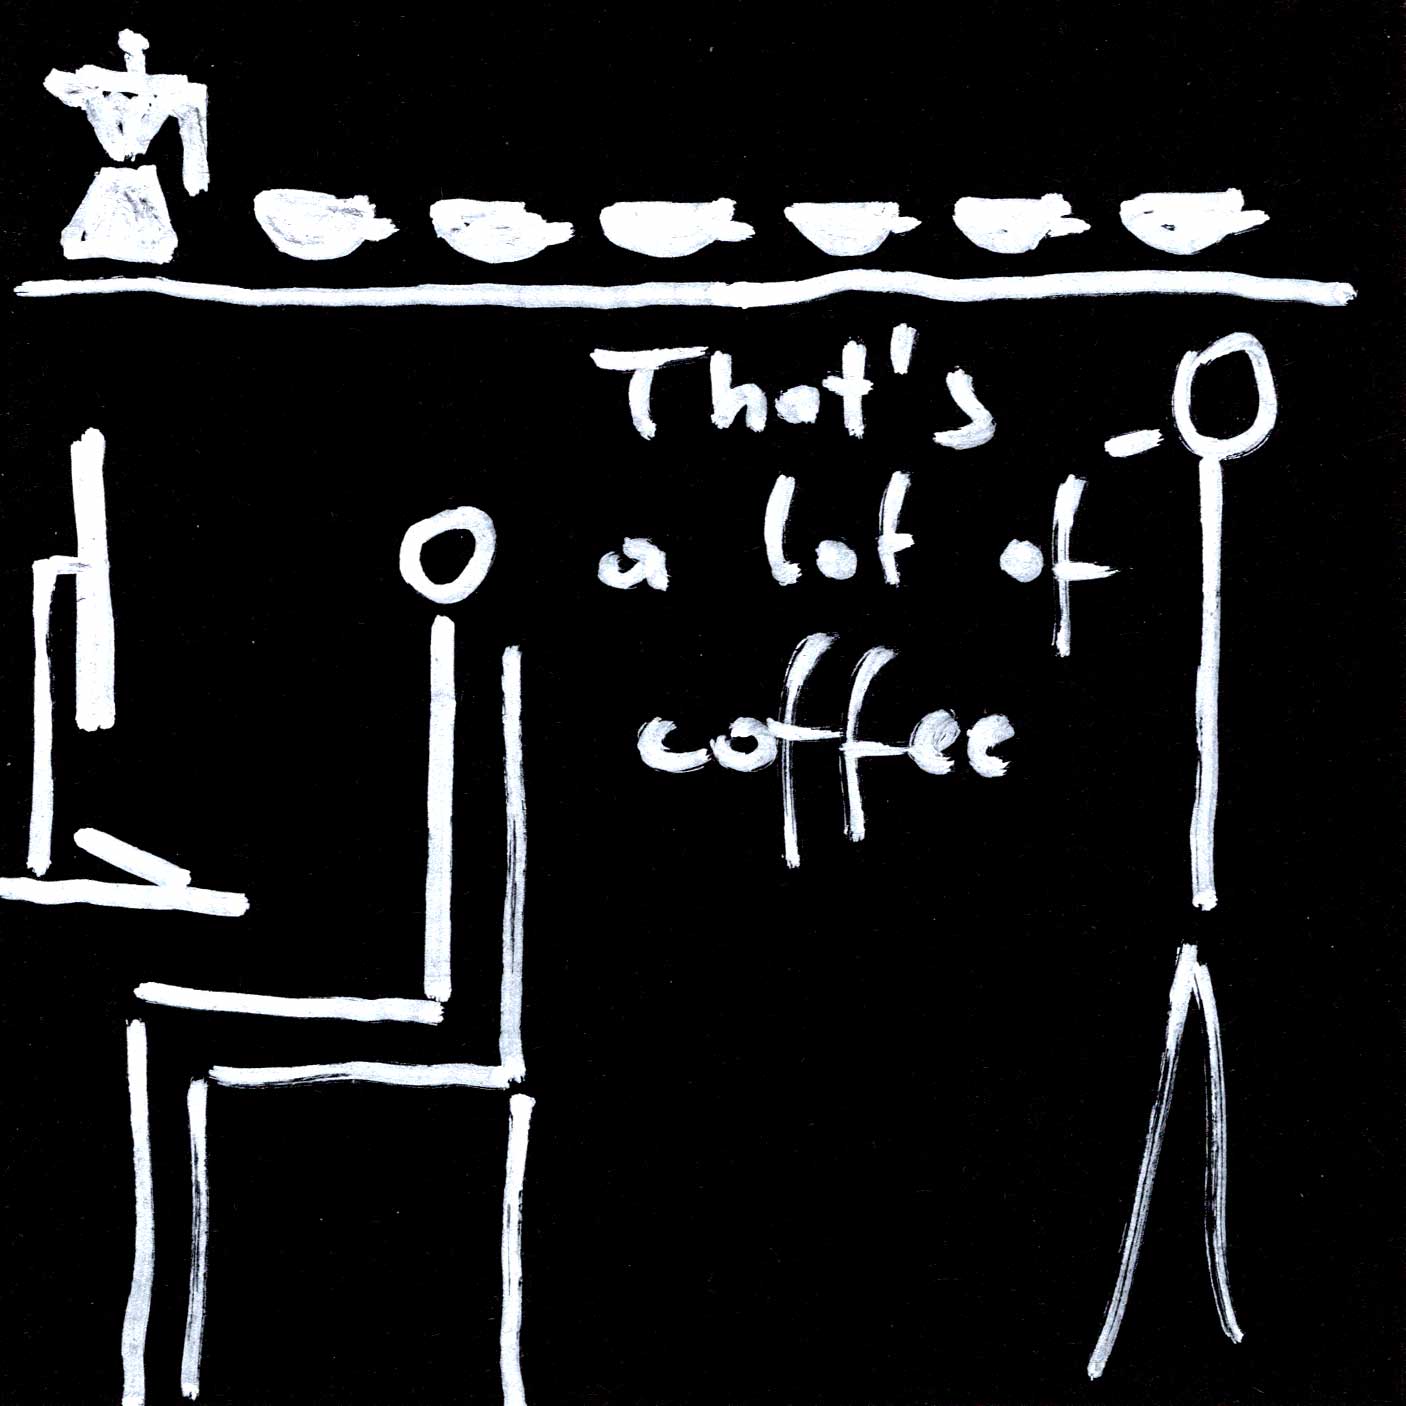 That's
a lot of
coffee